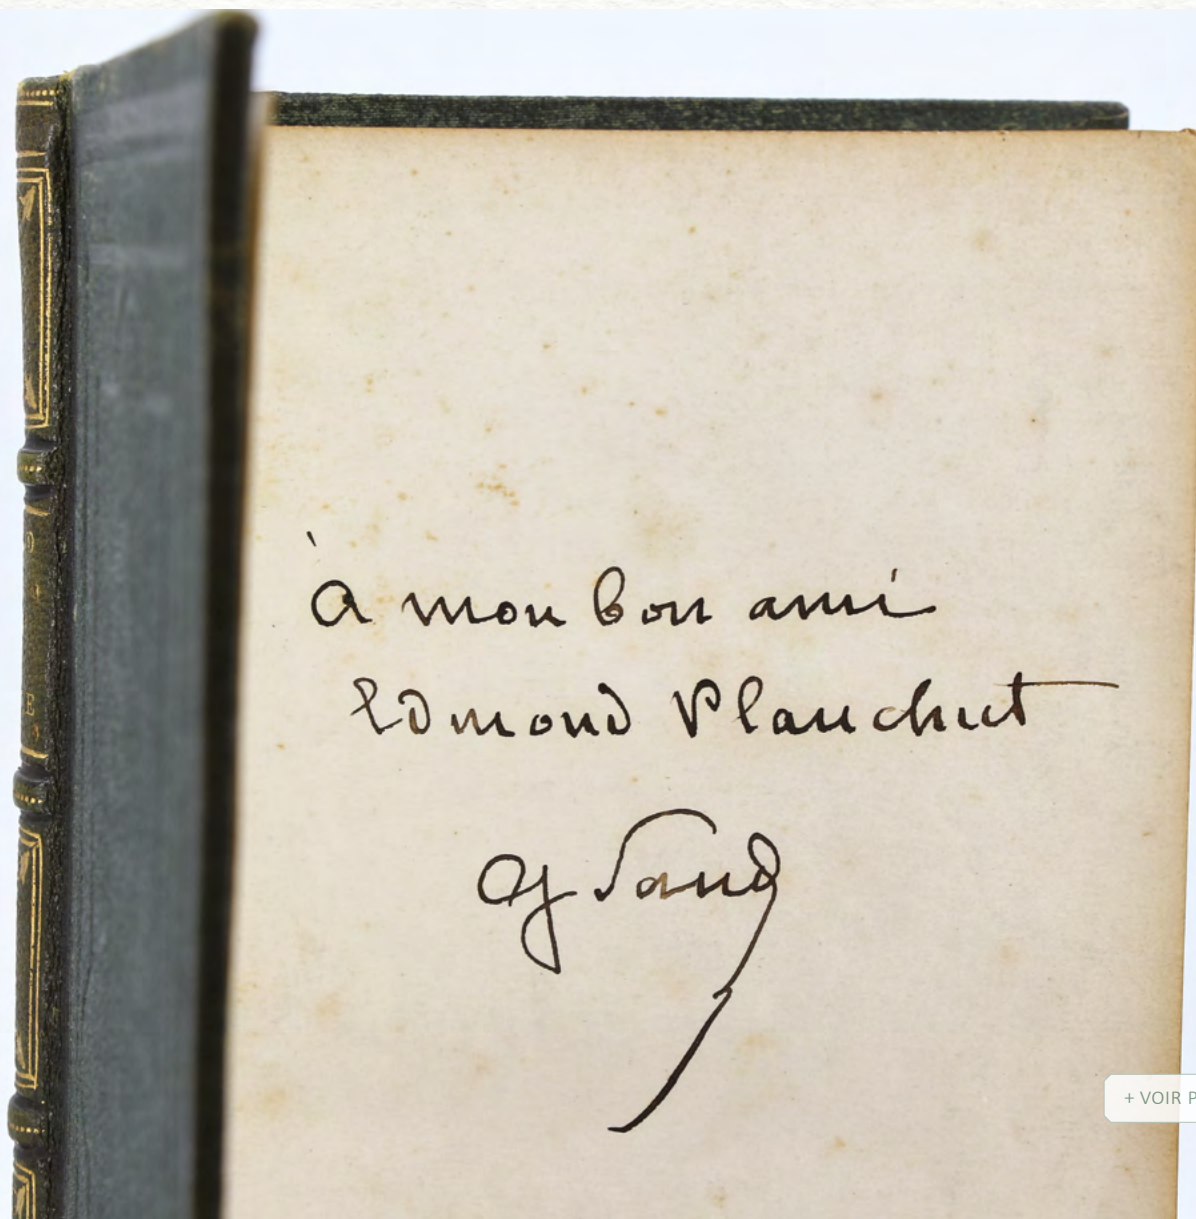 à mon bon ami
Edmond Plauchut
G Sand
+ VOIR P